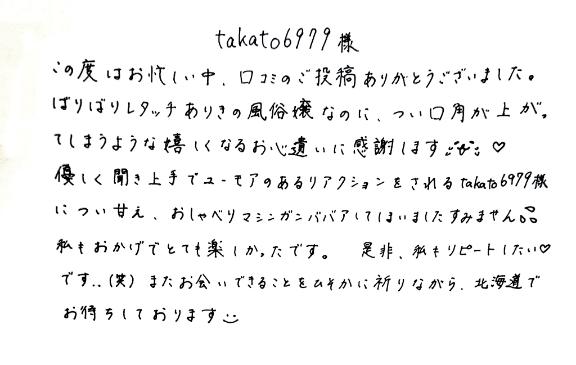 takato6979様
この度はお忙しい中、口コミのご投稿ありがとうございました。
ばりばりレタッチありきの風俗嬢なのに、つい口角が上がっ
てしまうような嬉しくなるお心遣いに感謝します♡
優しく聞き上手でユーモアのあるリアクションをされるtakato6979様
につい甘え、おしゃべりマシンガンババアしてしまいましたすみません
私もおかげでとても楽しかったです。 是非、私もリピートしたい♡
です..(笑) またお会いできることをひそかに祈りながら、北海道で
お待ちしております